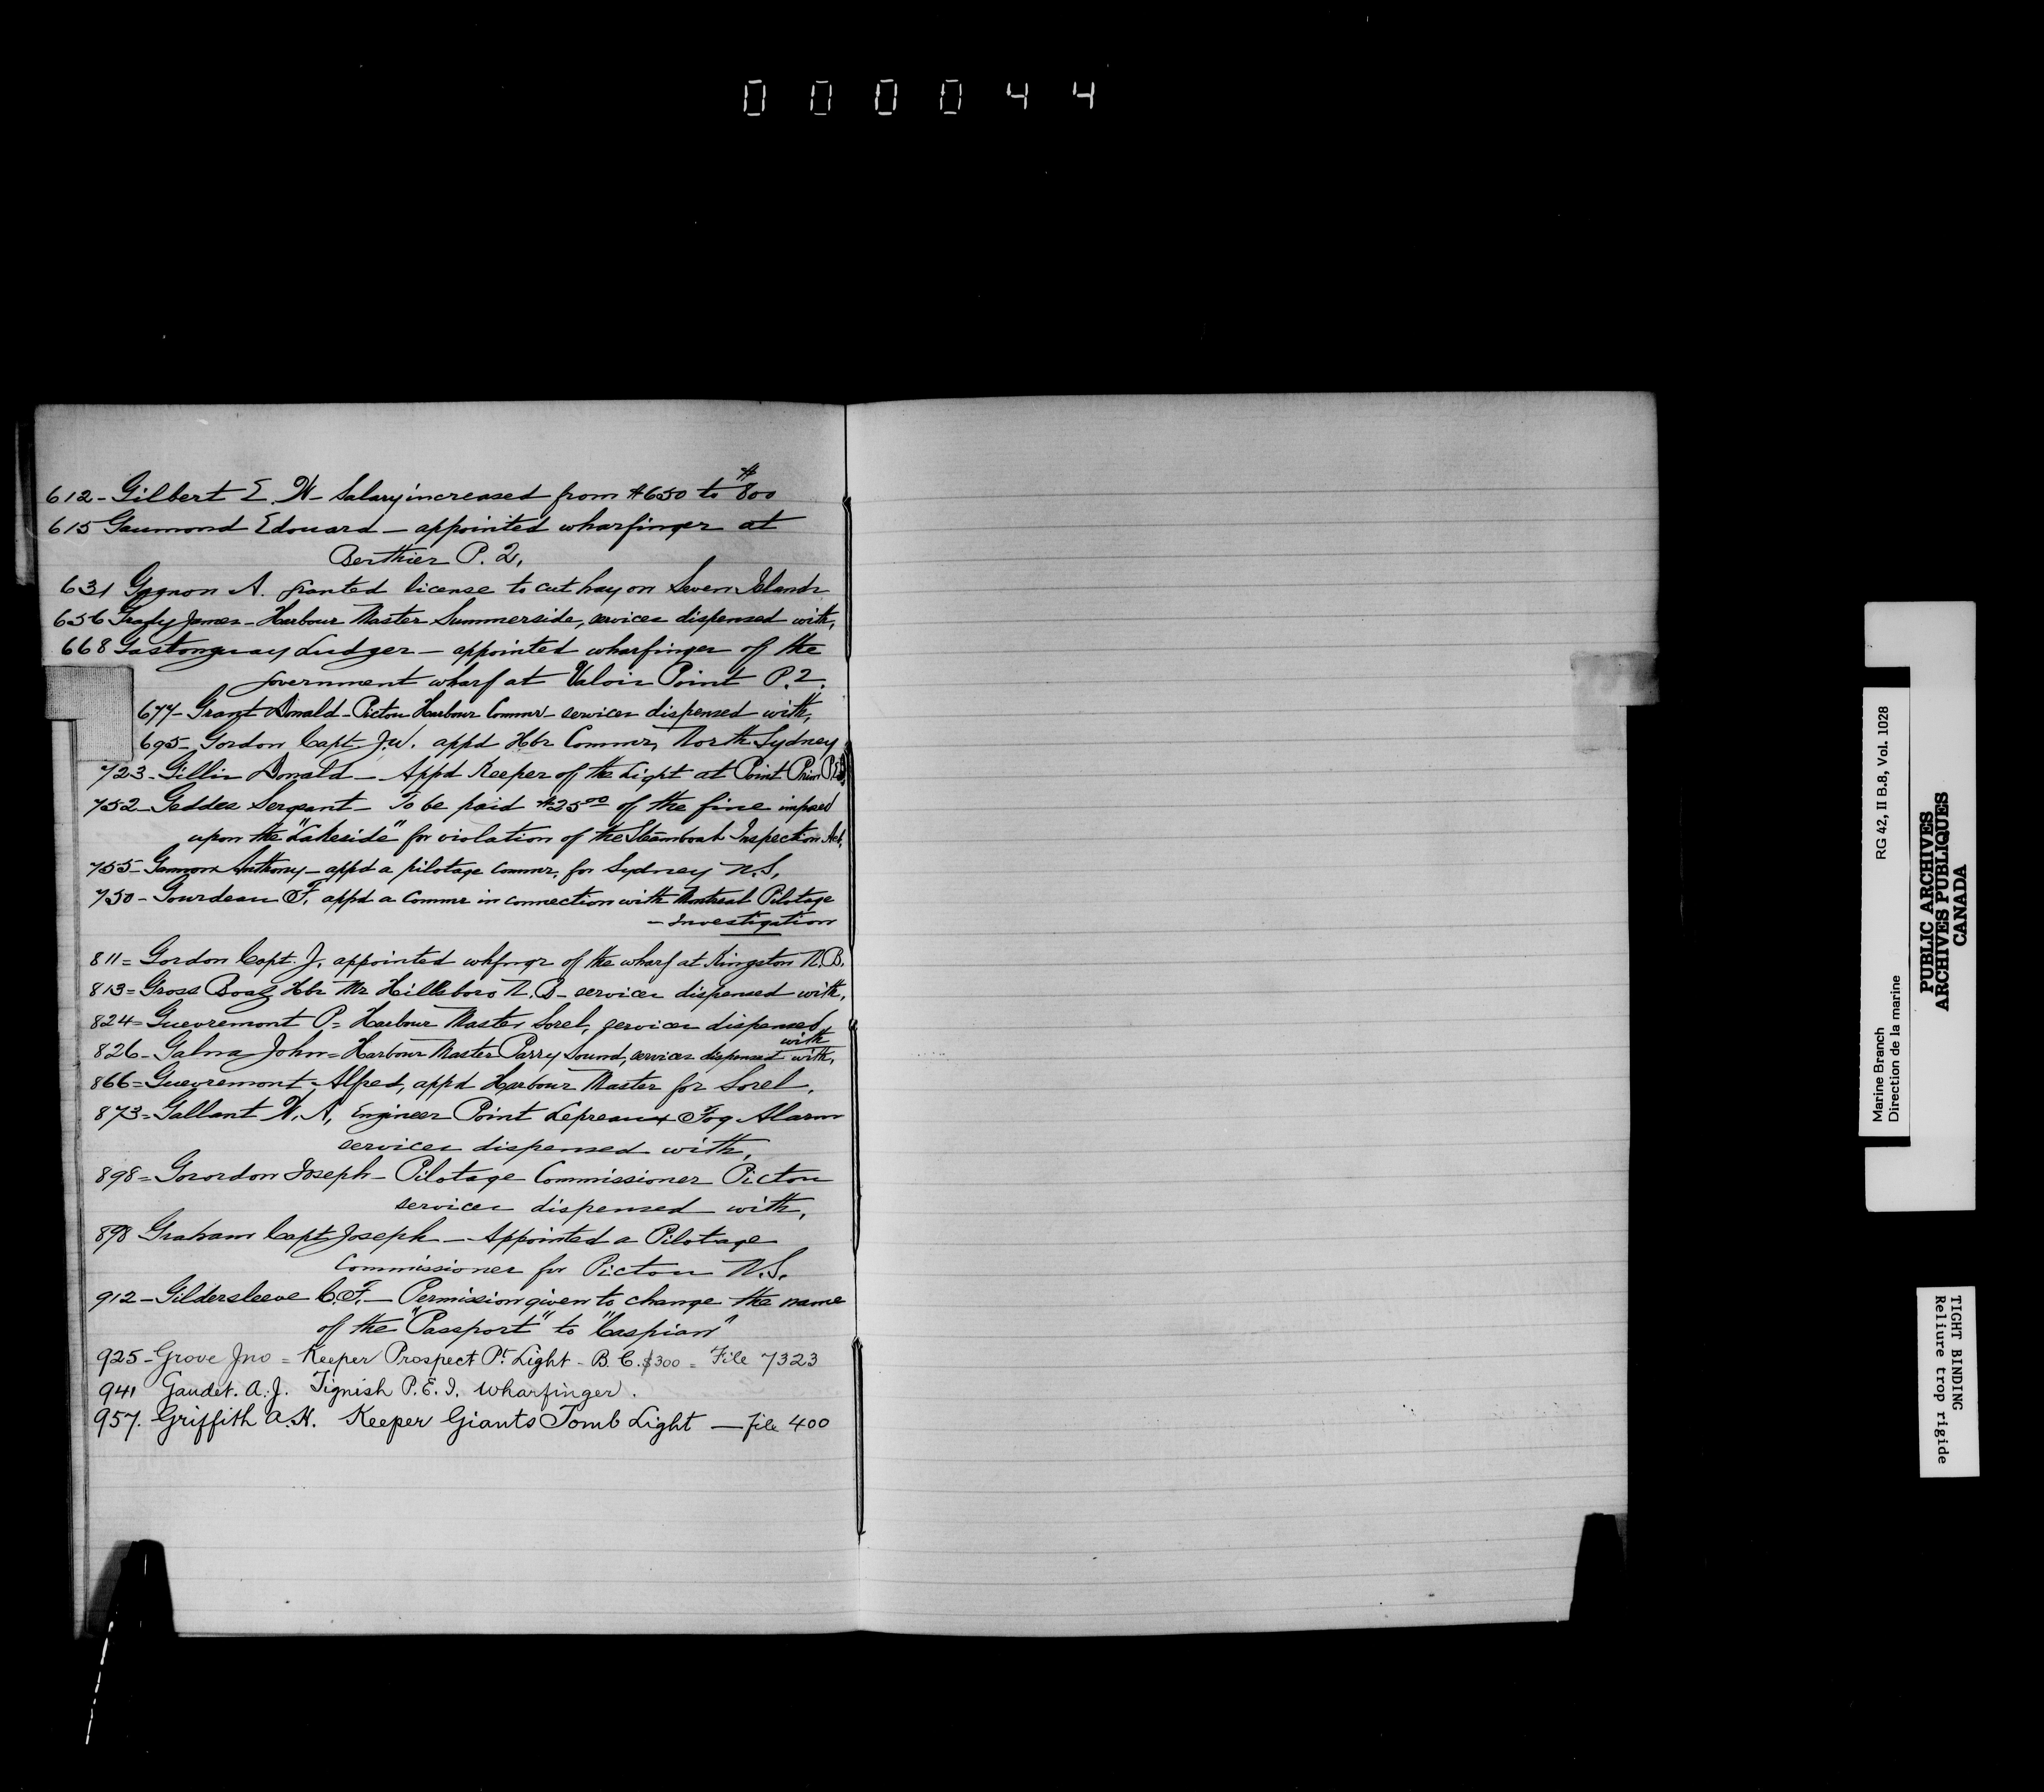 000044
612 - Gilbert E. W - Salary increased from $650 to $800
615 Gaumond Edouard - appointed wharfinger at
Berthier P. Q.
631 Gagnon A. granted license to cut hay on Seven Islands
656 James - Harbour Master Summerside, services dispensed with,
668 Gastonguay Ludger - appointed wharfinger of the
government wharf at Valois Point P.Q.
677 - Grant Donald - Pictou Harbour Commr - services dispensed with,
695 - Gordon Capt. J.W. appd Hbr Commr, North Sydney
723 - Gillis Donald - Appd Keeper of the Light at Point Prim P.E.I.
752 - Geddes Sergeant - To be paid $25.00 of the fine imposed
upon the "Lakeside" for violation of the Steamboat Inspection Act,
755 - Gannon Anthony - appd a pilotage commr, for Sydney N.S,
750 - Gourdeau F. appd a Commr in connection with Montreal Pilotage
- Investigation
811 = Gordon Capt. J, appointed whfngr of the wharf at Kingston N.B.
813 = Gross Boaz Hbr Mr Hillsboro N.B - services dispensed with,
824 = Guevremont P = Harbour Master Sorel, services dispensed
with
826 - Galna John = Harbour Master Parry Sound, services dispensed with,
866 = Guevremont Alfred, appd Harbour Master for Sorel,
873 = Gallant W. A, Engineer Point Lepreaux Fog Alarm
services dispensed with,
898 = Gorordon Joseph - Pilotage Commissioner Pictou
services dispensed with,
898 Graham Capt Joseph - Appointed a Pilotage
Commissioner for Pictou N.S.
912 - Gildersleeve C.F. - Permission given to change the name
of the "Passport" to "Caspian"
925 - Grove Jno = Keeper Prospect Pt. Light - B.C. $300 = File 7323
941 Gaudet. A.J. Tignish P.E.I. Wharfinger.
957. Griffith A.H. Keeper Giants Tomb Light - File 400
Marine Branch
Direction de la marine
RG 42, II B.8, Vol. 1028
PUBLIC ARCHIVES
ARCHIVES PUBLIQUES
CANADA
TIGHT BINDING
Reliure trop rigide